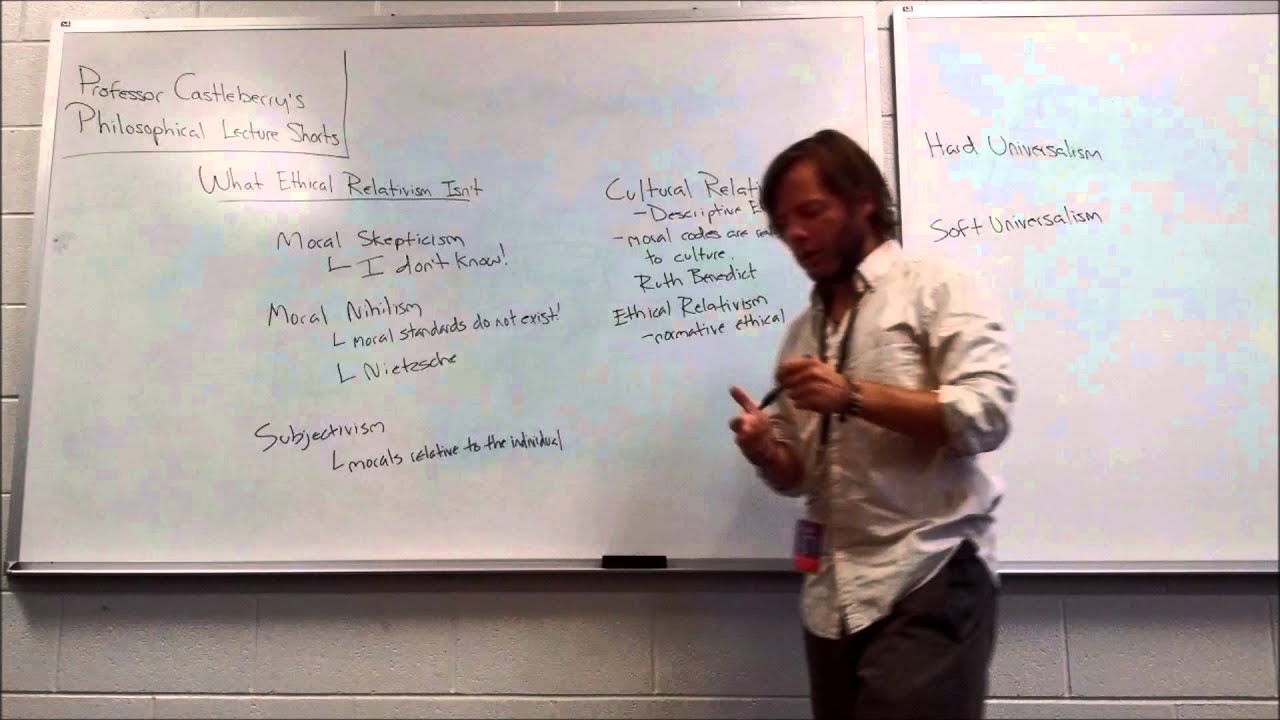 Professor Castleberry's
Philosophical Lecture Shorts
What Ethical Relativism Isn't
Moral Skepticism
I don't know!
Moral Nihilism
moral standards do not exist!
Nietzsche
Subjectivism
morals relative to the individual
Cultural
-Descriptive
-moral codes are
to culture.
Ruth Benedict
Ethical Relativism
-normative ethical
Hard Universalism
Soft Universalism